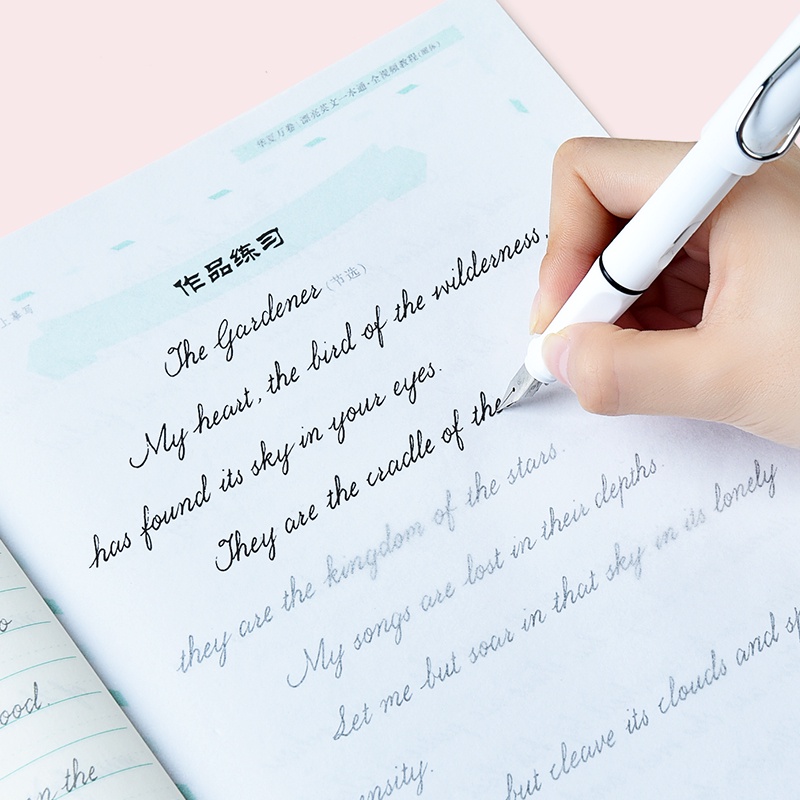 华夏万卷 漂亮英文一本通·全视频教程(圆体)
作品练习
The Gardener (节选)
My heart, the bird of the wilderness,
has found its sky in your eyes.
They are the cradle of the
they are the kingdom of the stars.
My songs are lost in their depths.
Let me but soar in that sky in its lonely
but cleave its clouds and
the